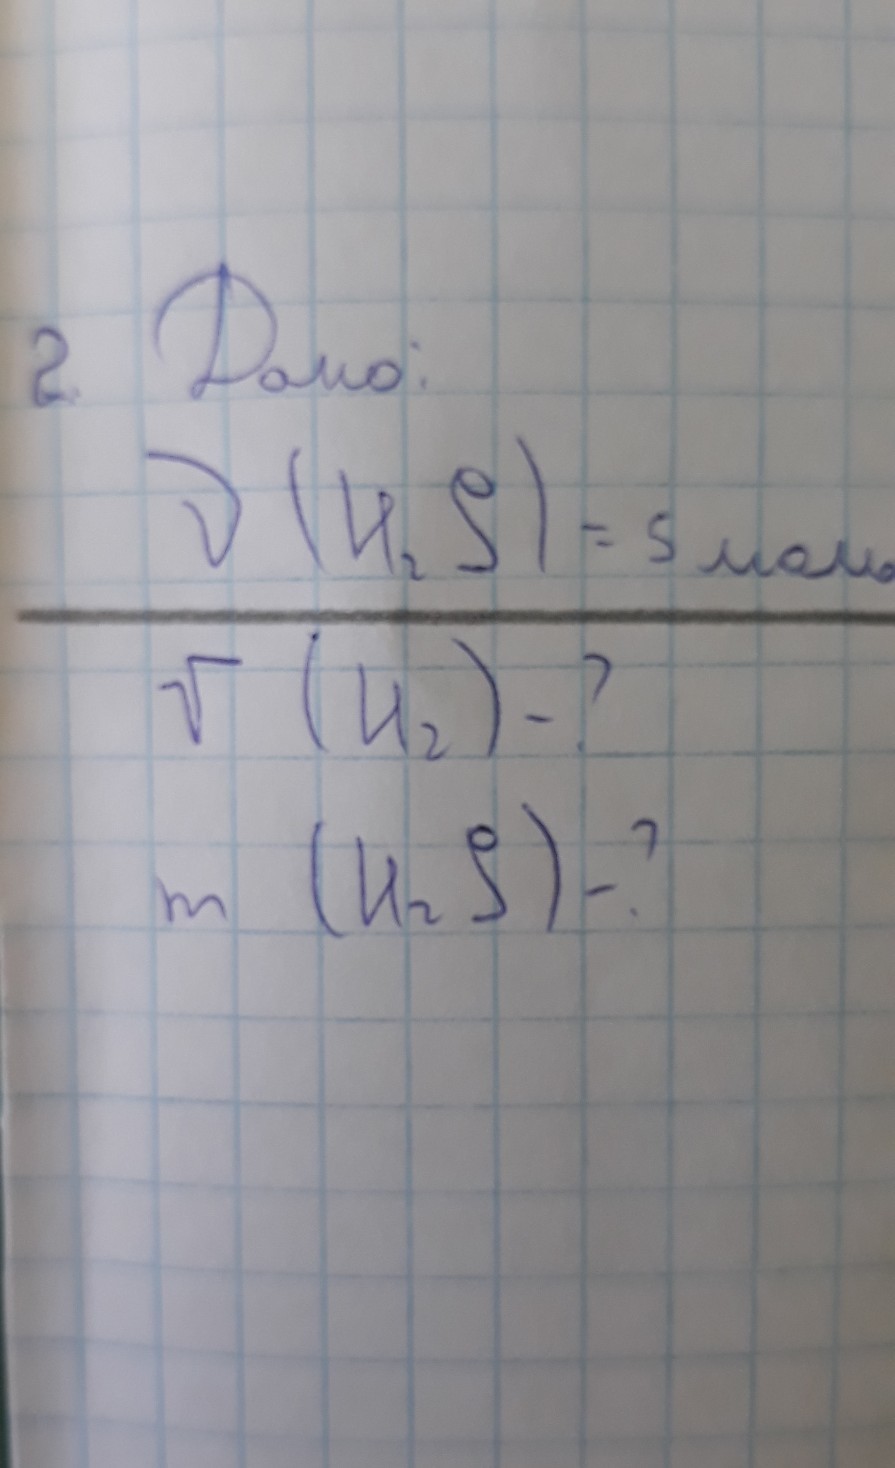 2. Дано:
ν (H₂S) = 5 моль
V (H₂) - ?
m (H₂S) - ?